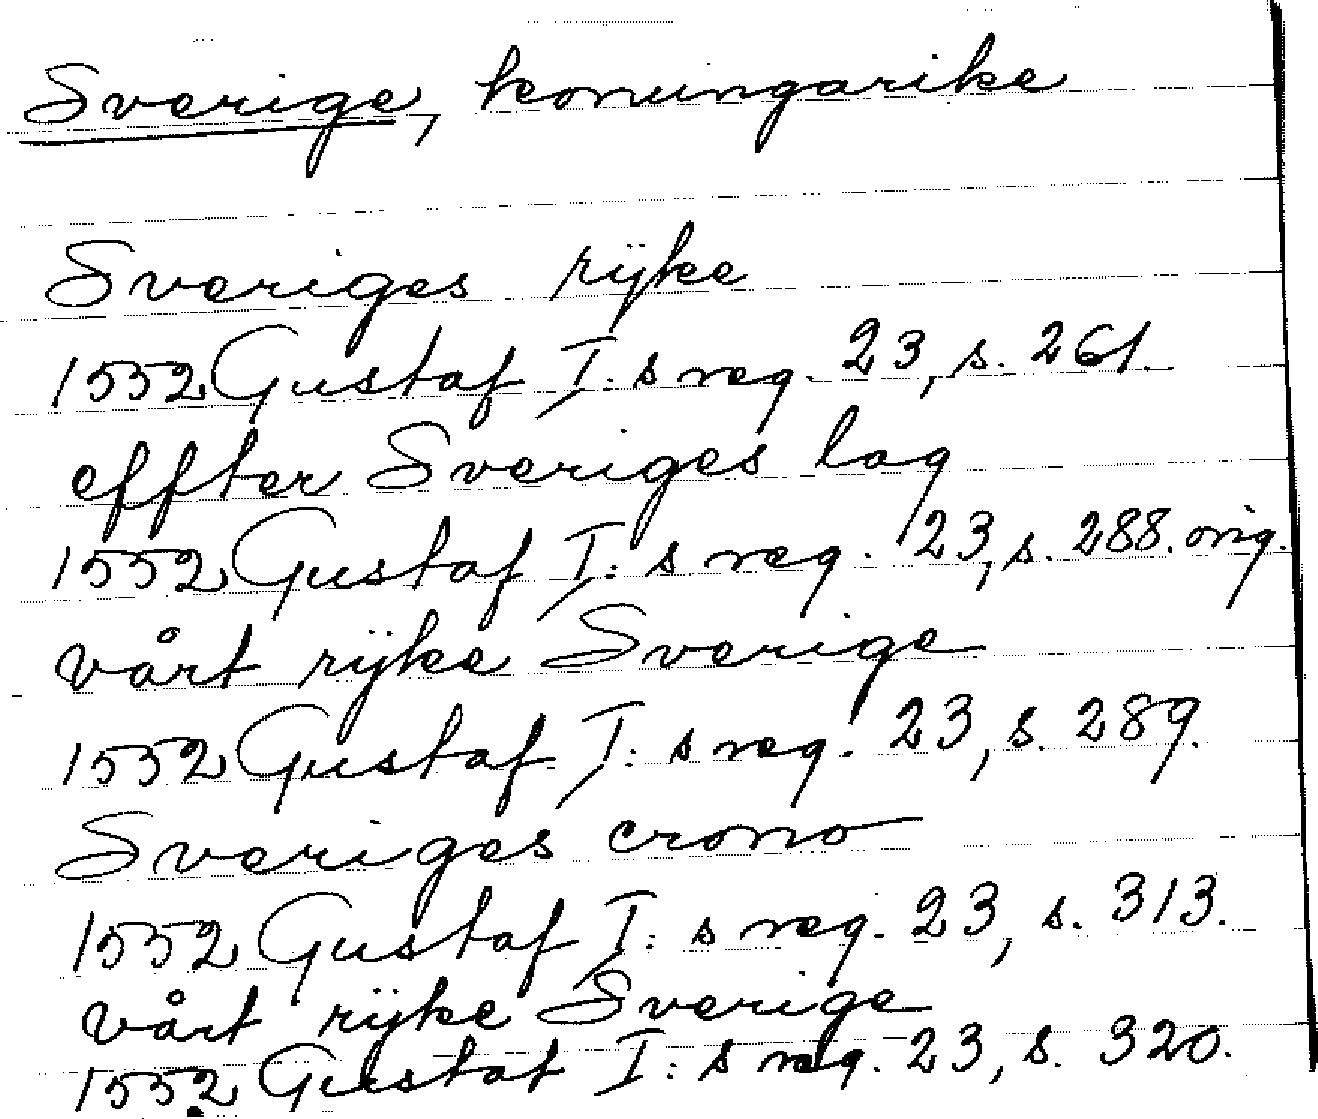 Sverige, konungarike
Sveriges rÿke
1552 Gustaf I: s reg. 23, s. 261.
effter Sveriges lag
1552 Gustaf I: s reg. 23, s. 288. orig.
vårt rÿke Sverige
1552 Gustaf I: s reg. 23, s. 289.
Sveriges crono
1552 Gustaf I: s reg. 23, s. 313.
vårt rÿke Sverige
1552 Gustaf I: s reg. 23, s. 320.